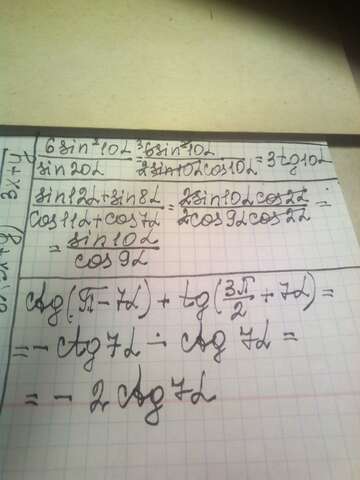 6sin²10α / sin20α = ³6sin²10α / 2sin10αcos10α = 3tg10α
sin12α+sin8α / cos11α+cos7α = 2sin10αcos2α / 2cos9αcos2α =
= sin10α / cos9α
ctg(π-7α) + tg(3π/2 + 7α) =
= - ctg7α - ctg7α =
= - 2ctg7α